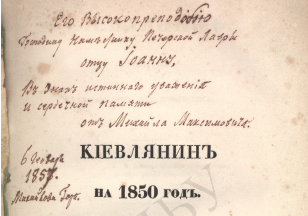 Его Высокопреподобію
Господину Намѣстнику Печерской Лавры
отцу Іоанну,
Въ знакъ истиннаго уваженія
и сердечной памяти
отъ Михаила Максимовича.
6 Генваря
1857.
Михайлова Гора.
КІЕВЛЯНИНЪ
НА 1850 ГОДЪ.